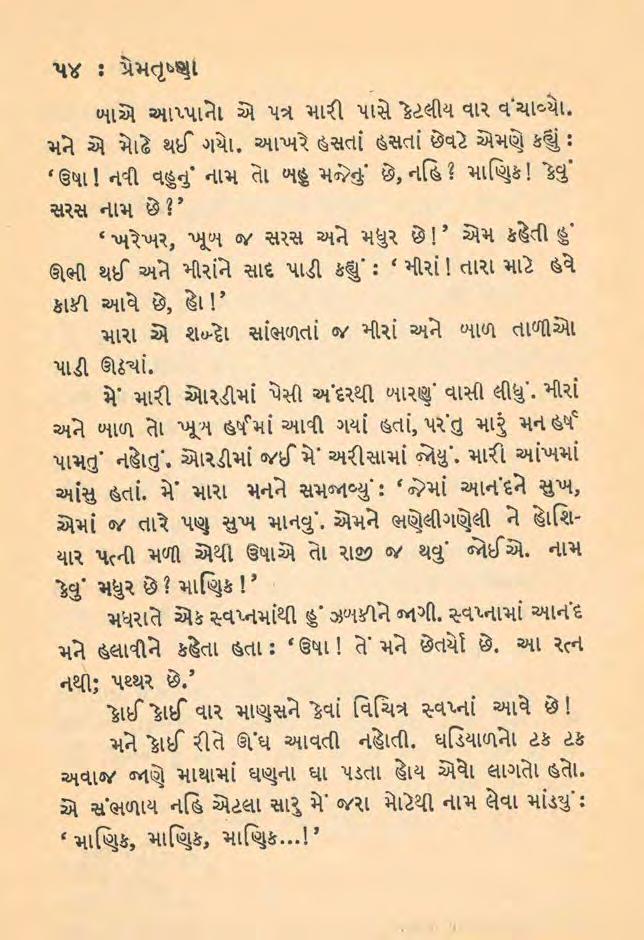 ૫૪ : પ્રેમતૃષ્ણા
બાએ આપ્પાનો એ પત્ર મારી પાસે કેટલીય વાર વંચાવ્યો.
મને એ મોઢે થઈ ગયો. આખરે હસતાં હસતાં છેવટે એમણે કહ્યું :
‘ઉષા! નવી વહુનું નામ તો બહુ મજેનું છે, નહિ? માણિક! કેવું
સરસ નામ છે?’
‘ખરેખર, ખૂબ જ સરસ અને મધુર છે!’ એમ કહેતી હું
ઊભી થઈ અને મીરાંને સાદ પાડી કહ્યું : ‘મીરાં! તારા માટે હવે
કાકી આવે છે, હો!’
મારા એ શબ્દો સાંભળતાં જ મીરાં અને બાળ તાળીઓ
પાડી ઊઠ્યાં.
મેં મારી ઓરડીમાં પેસી અંદરથી બારણું વાસી લીધું. મીરાં
અને બાળ તો ખૂબ હર્ષમાં આવી ગયાં હતાં, પરંતુ મારું મન હર્ષ
પામતું નહોતું. ઓરડીમાં જઈ મેં અરીસામાં જોયું. મારી આંખમાં
આંસુ હતાં. મેં મારા મનને સમજાવ્યું : ‘જેમાં આનંદને સુખ,
એમાં જ તારે પણ સુખ માનવું. એમને ભણેલીગણેલી ને હોશિ-
યાર પત્ની મળી એથી ઉષાએ તો રાજી જ થવું જોઈએ. નામ
કેવું મધુર છે? માણિક!’
મધરાતે એક સ્વપ્નમાંથી હું ઝબકીને જાગી. સ્વપ્નામાં આનંદ
મને હલાવીને કહેતા હતા : ‘ઉષા! તેં મને છેતર્યો છે. આ રત્ન
નથી; પથ્થર છે.’
કોઈ કોઈ વાર માણસને કેવાં વિચિત્ર સ્વપ્નાં આવે છે!
મને કોઈ રીતે ઊંઘ આવતી નહોતી. ઘડિયાળનો ટક ટક
અવાજ જાણે માથામાં ઘણના ઘા પડતા હોય એવો લાગતો હતો.
એ સંભળાય નહિ એટલા સારુ મેં જરા મોટેથી નામ લેવા માંડ્યું :
‘માણિક, માણિક, માણિક...!’